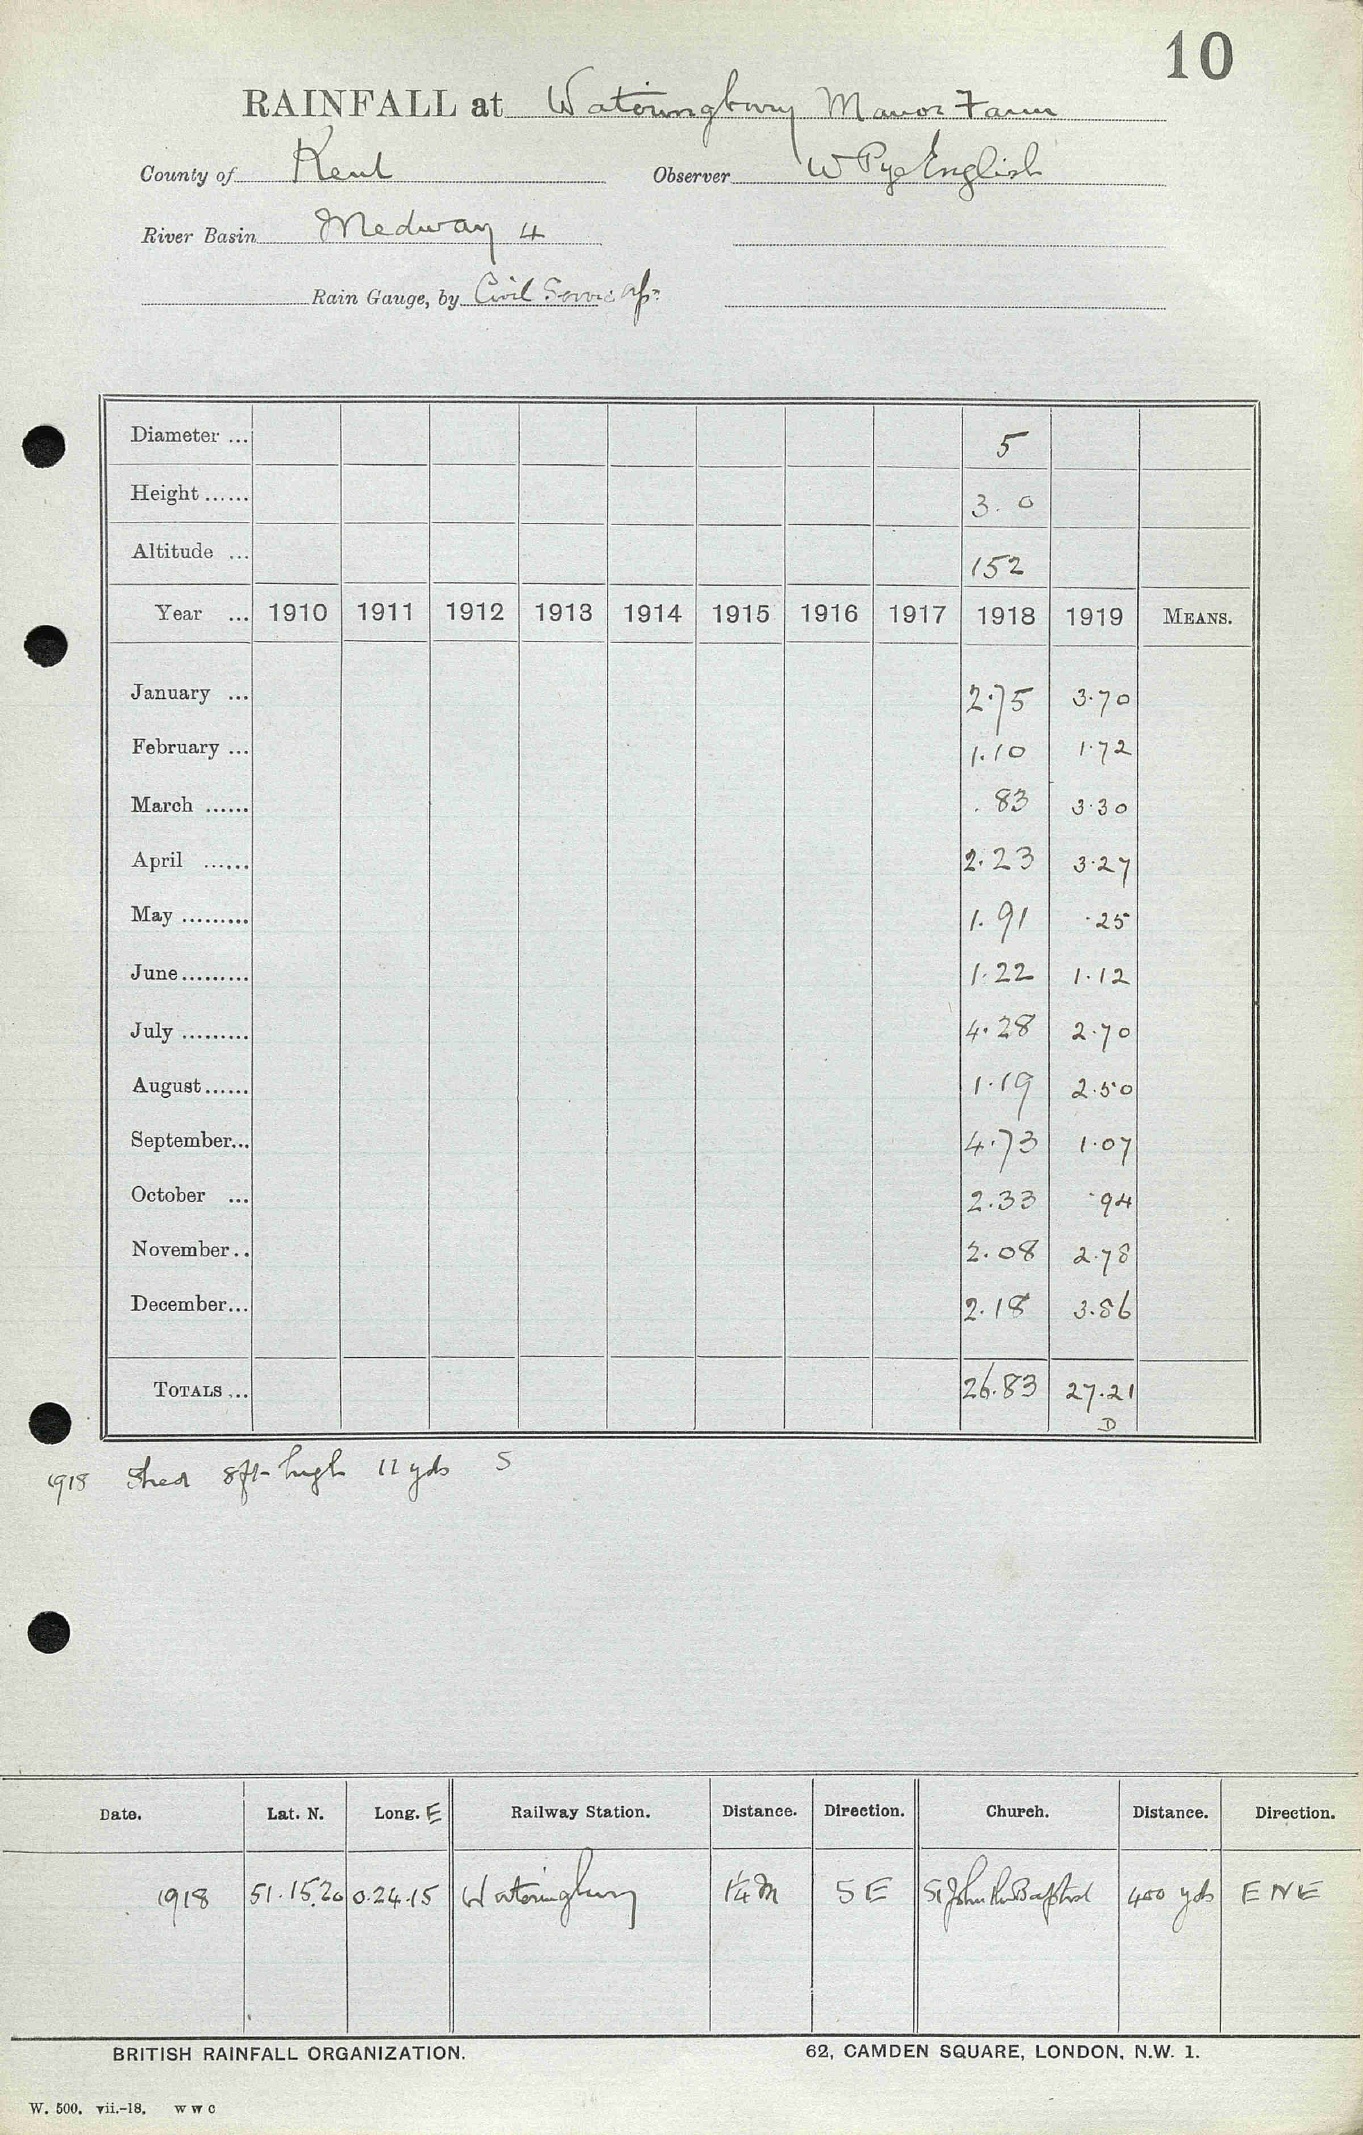 10
RAINFALL at Wateringbury Manor Farm
County of Kent Observer W Pye English
River Basin Medway 4
Rain Gauge, by Civil Service
Diameter ... 5
Height ...... 3.0
Altitude ... 152
Year ... 1910 1911 1912 1913 1914 1915 1916 1917 1918 1919 MEANS.
January ... 2.75 3.70
February ... 1.10 1.72
March ...... .83 3.30
April ...... 2.23 3.27
May ......... 1.91 .25
June......... 1.22 1.12
July ......... 4.28 2.70
August...... 1.19 2.50
September... 4.73 1.07
October ... 2.33 .94
November.. 2.08 2.78
December... 2.18 3.86
TOTALS ... 26.83 27.21
D
1918 Shed 8ft high 11 yds S
Date. Lat. N. Long. E Railway Station. Distance. Direction. Church. Distance. Direction.
1918 51.15.20 0.24.15 Wateringbury 1¼ M SE St John the Baptist 400 yds ENE
BRITISH RAINFALL ORGANIZATION. 62, CAMDEN SQUARE, LONDON, N.W. 1.
W. 500. vii.-18. W W C